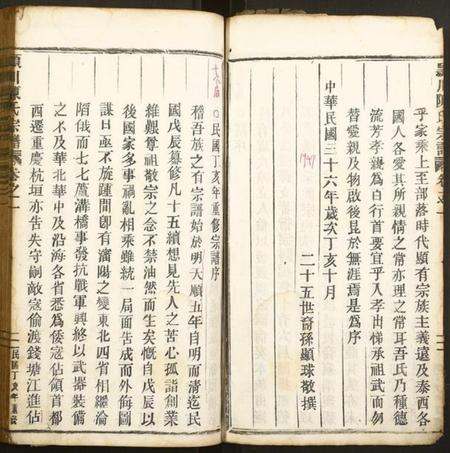 潁川陳氏宗譜
乎家乘上至部落時代顯有宗族主義遠及泰西各
國人各愛其所親情之常亦理之常耳吾氏乃種德
流芳孝親為白行首要宜乎入孝出悌承祖武而勿
替愛親及物啟後昆於無涯焉是為序
中華民國三十六年歲次丁亥十月
1947
二十五世裔孫顯球敬撰
民國丁亥年重修宗譜序
稽吾族之有宗譜始於明天順五年自明而清迄民
國戊辰纂修凡十五續想見先人之苦心孤詣創業
維艱尊祖敬宗之念不禁油然而生矣慨自戊辰以
後國家多事禍亂相乘雖統一局面告成而外侮圖
謀日亟不旋踵間卽有瀋陽之變東北四省相繼淪
陷俄而七七蘆溝橋事發抗戰軍興終以武器裝備
之不及華北華中及沿海各省悉為倭寇佔領首都
西遷重慶杭垣亦告失守嗣敵寇偷渡錢塘江進佔
潁川陳氏宗譜 卷之一
民國丁亥年重修